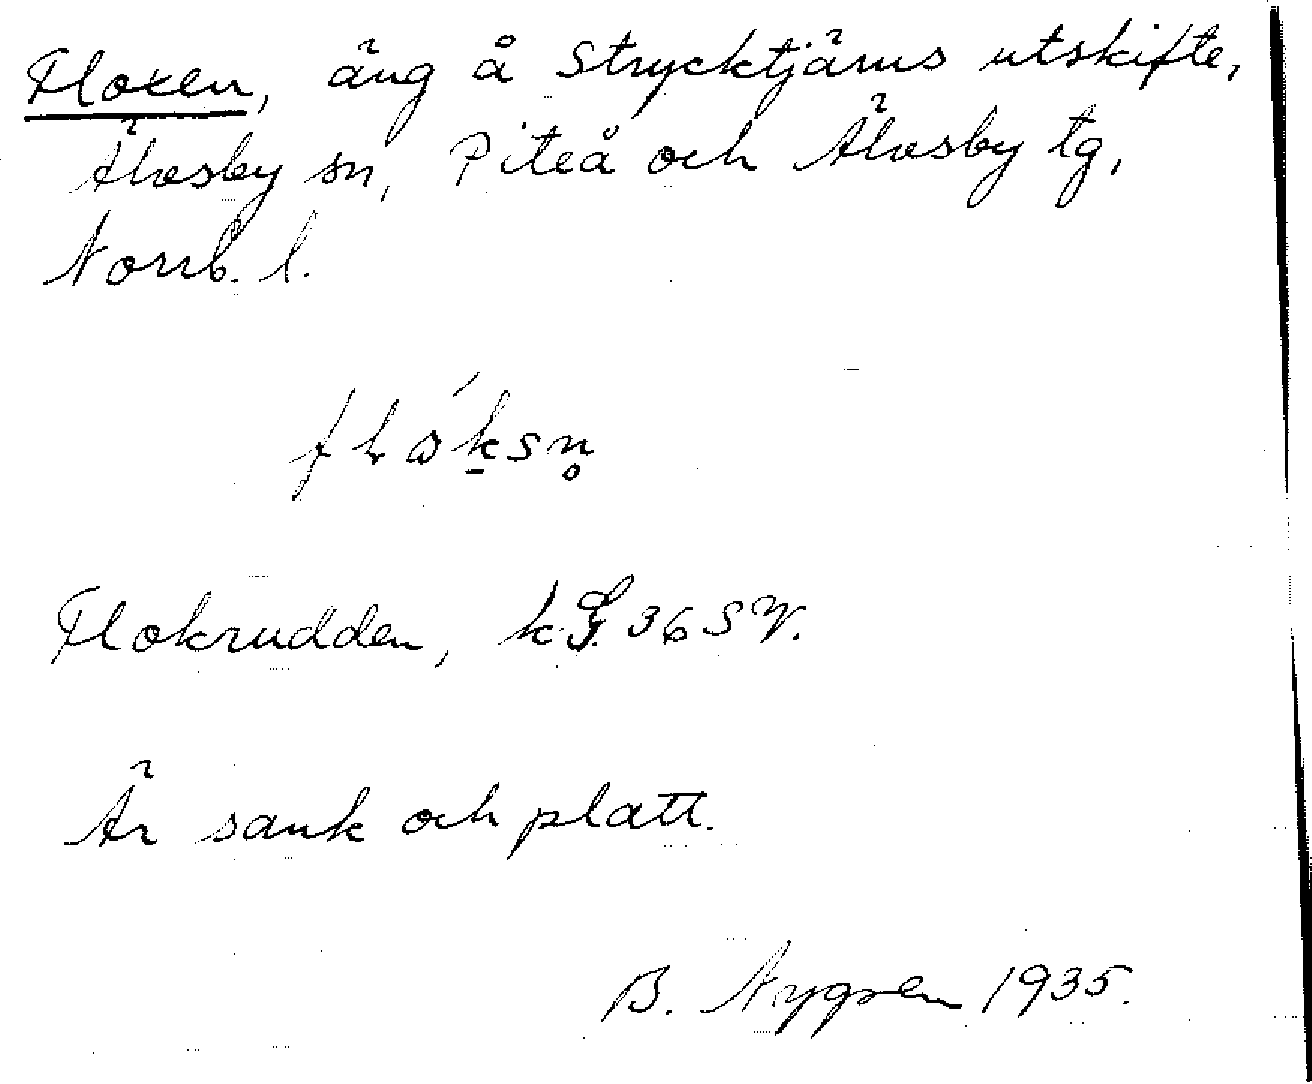 Floxen, äng å Strycktjärns utskifte,
Älvsby sn, Piteå och Älvsby tg,
Norrb. l.
Flokrudden, kG 36 SV.
Är sank och platt.
B. Nygren 1935.